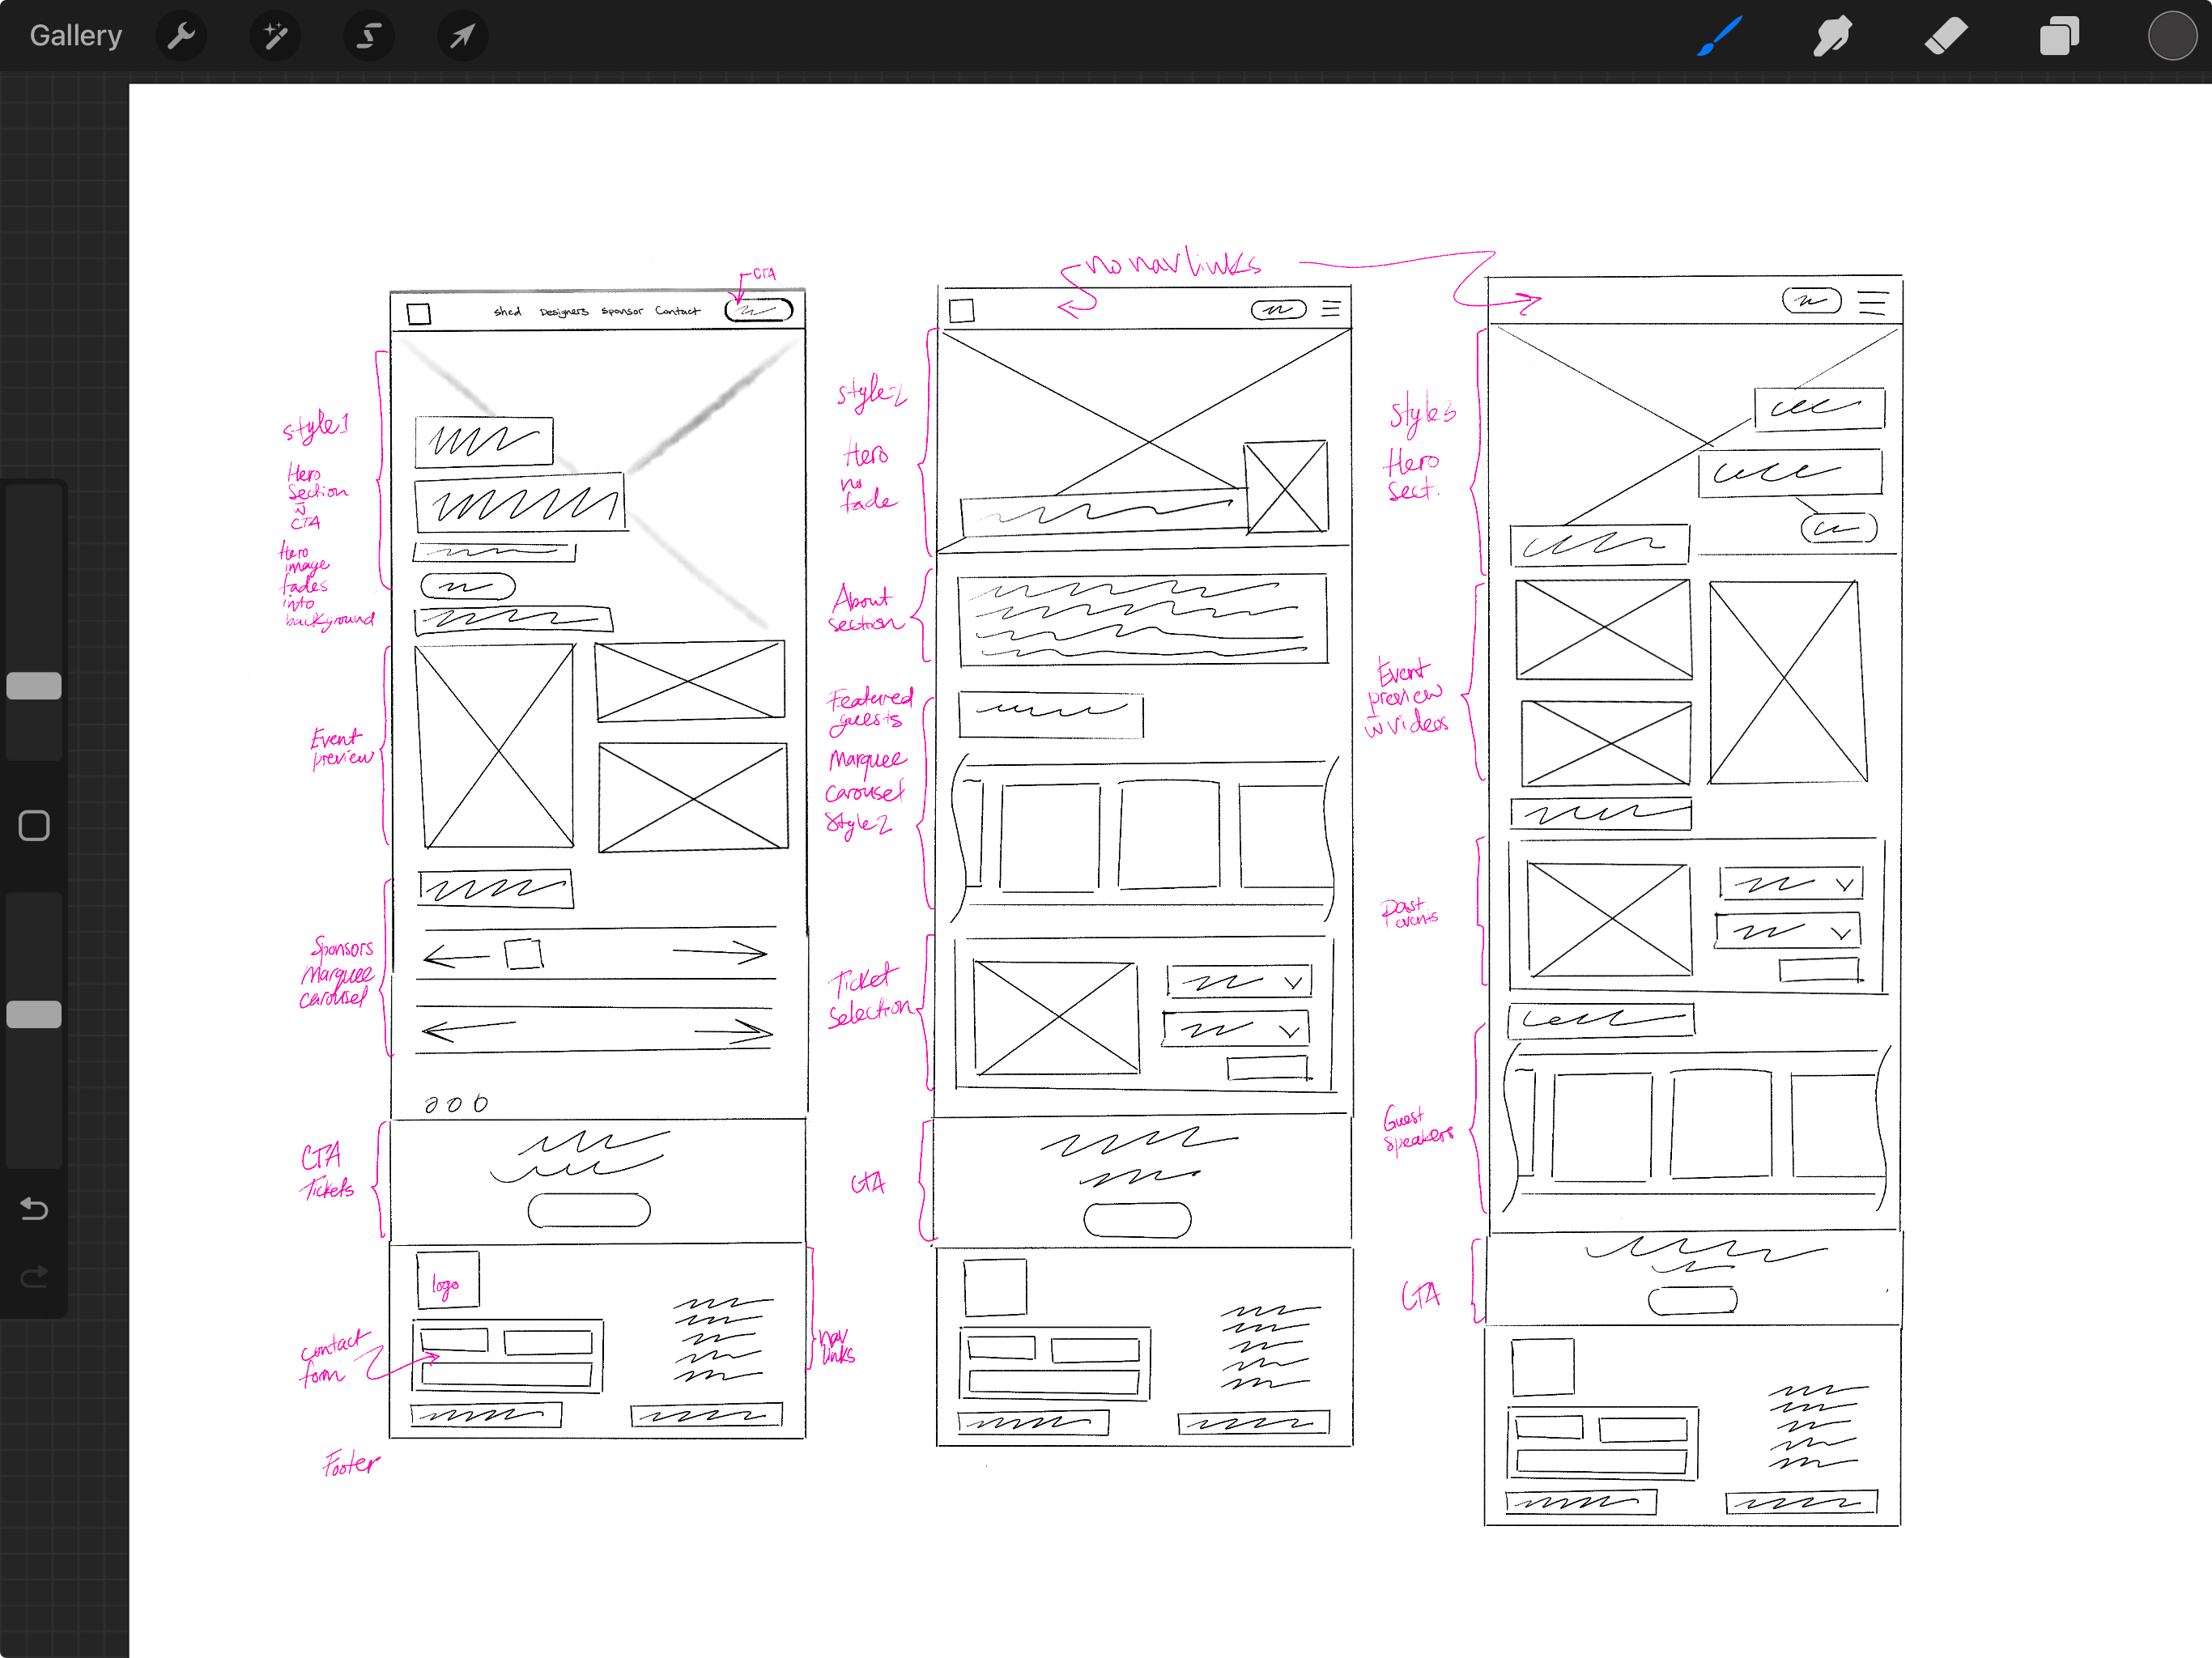 Gallery
no nav links
CTA
shcd Designers Sponsor Contact
style 1
Hero
Section
w̄
CTA
Hero
image
fades
into
background
Event
preview
Sponsors
Marquee
carousel
CTA
Tickets
logo
contact
form
nav
links
Footer
style 2
Hero
no
fade
About
section
Featured
guests
Marquee
carousel
Style 2
Ticket
Selection
CTA
Style 3
Hero
Sect.
Event
preview
w̄ videos
Past
events
Guest
Speakers
CTA